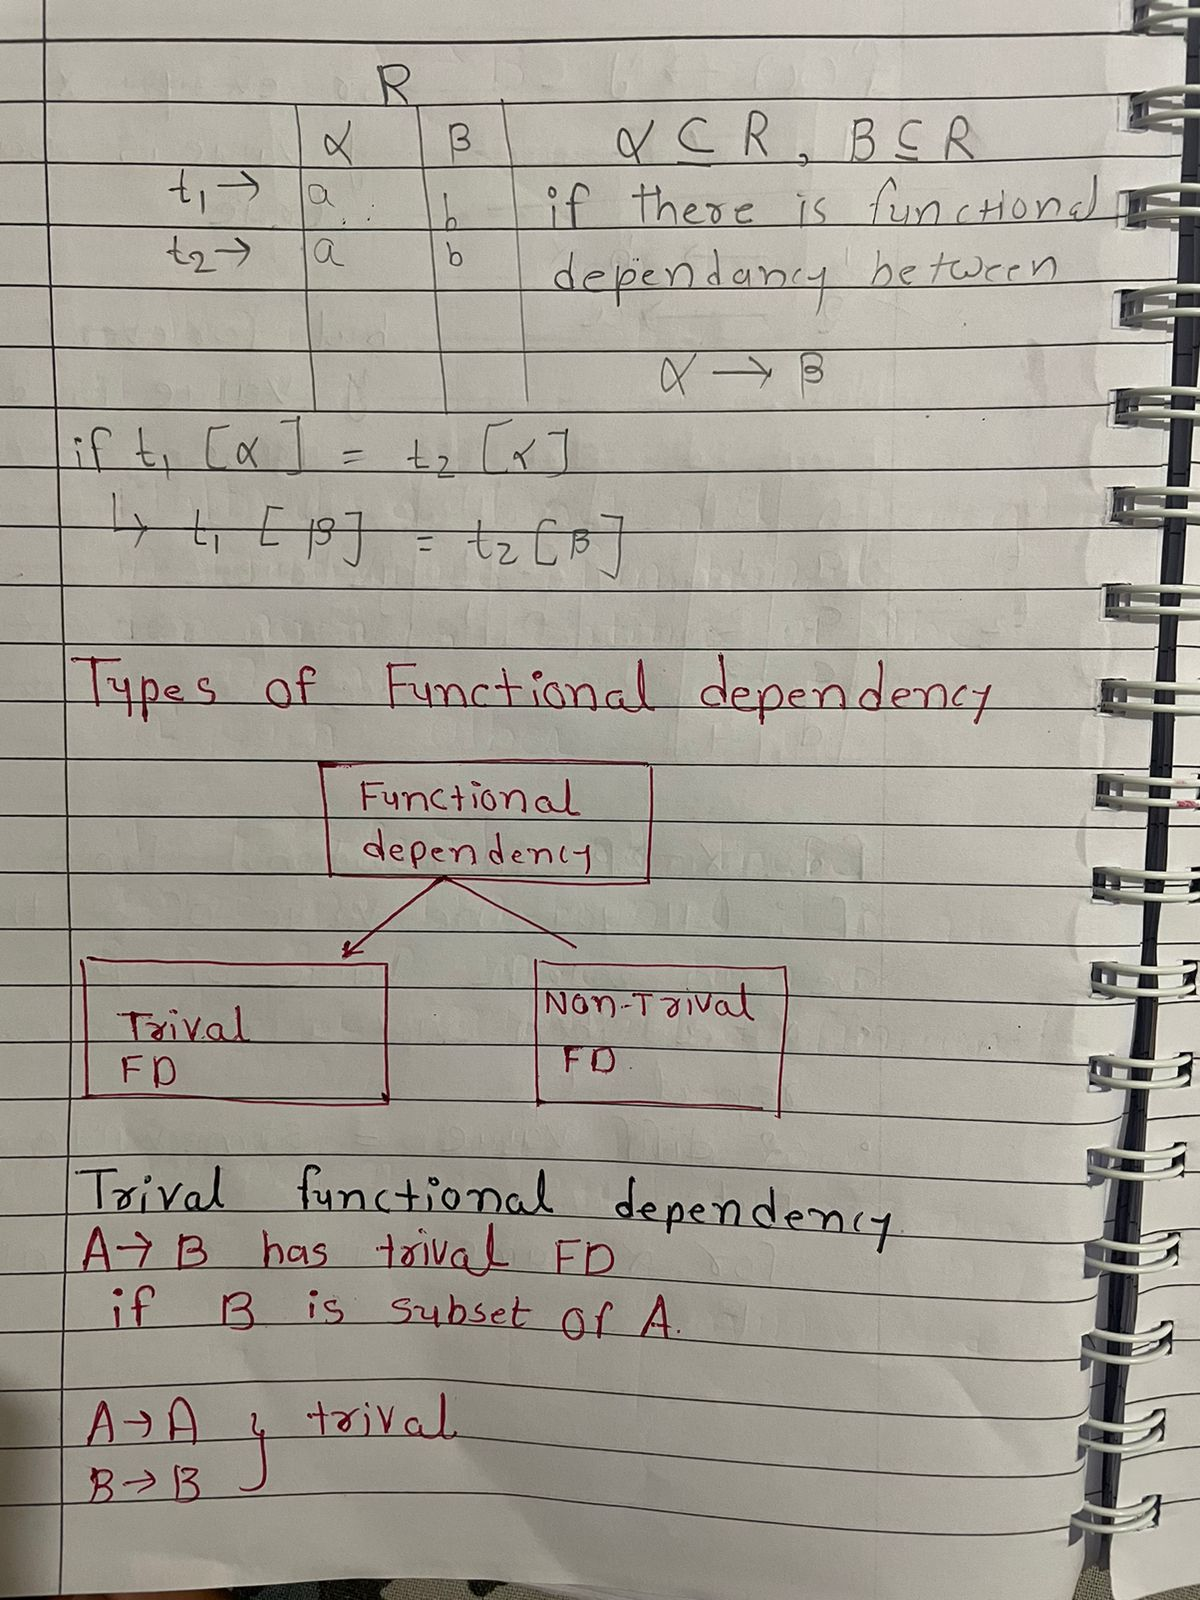 R
α β α ⊆ R, B ⊆ R
t₁ → a b if there is functional
t₂ → a b dependancy between
α → β
if t₁ [α] = t₂ [α]
↳ t₁ [β] = t₂ [β]
Types of Functional dependency
Functional
dependency
Trival
FD
Non-Trival
FD
Trival functional dependency
A → B has trival FD
if B is subset of A.
A → A } trival
B → B